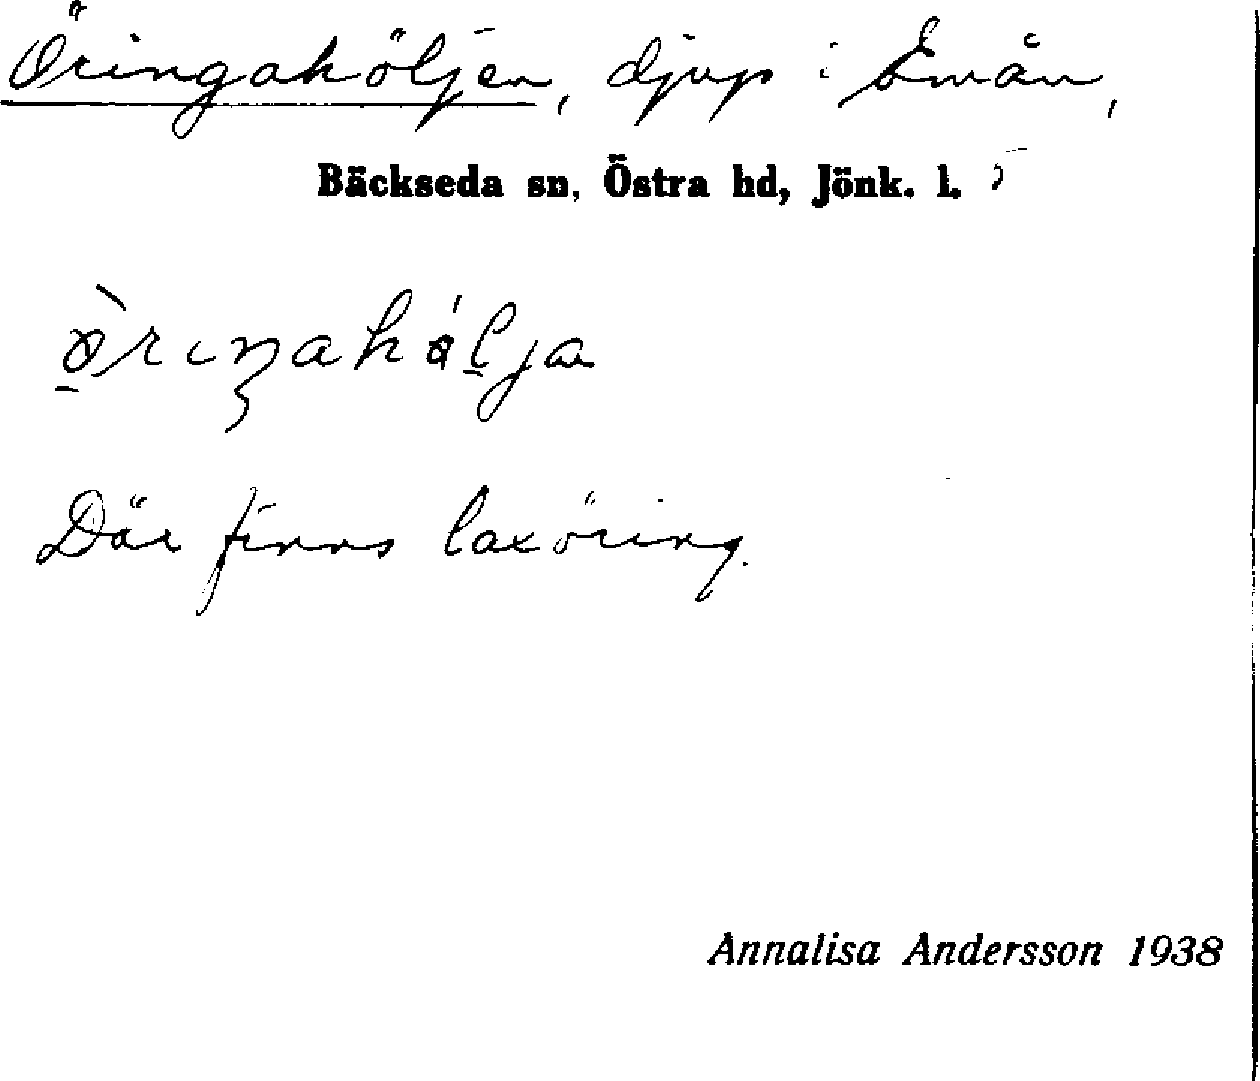 Öringahöljen, djup i Emån,
Bäckseda sn, Östra hd, Jönk. l. 5
ø̀riŋahǿlja
Där finns laxöring.
Annalisa Andersson 1938